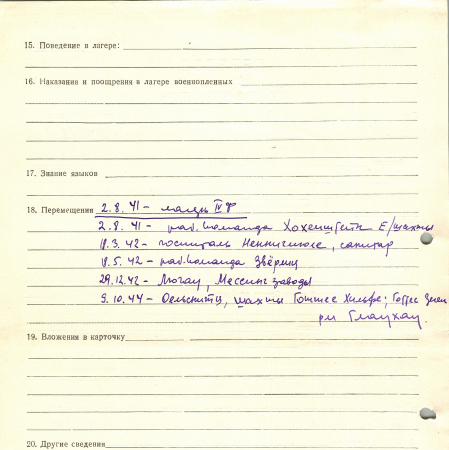 15. Поведение в лагере:
16. Наказания и поощрения в лагере военнопленных
17. Знание языков
18. Перемещения 2.8.41 – IV Ф
2.8.41 – раб. команда Хохенштейн Е/шахты
18.3.42 – госпиталь санитар
18.5.42 – раб. команда
29.12.42 – заводы
9.10.44 – Оельснитц, шахты
Глаухау.
19. Вложения в карточку
20. Другие сведения